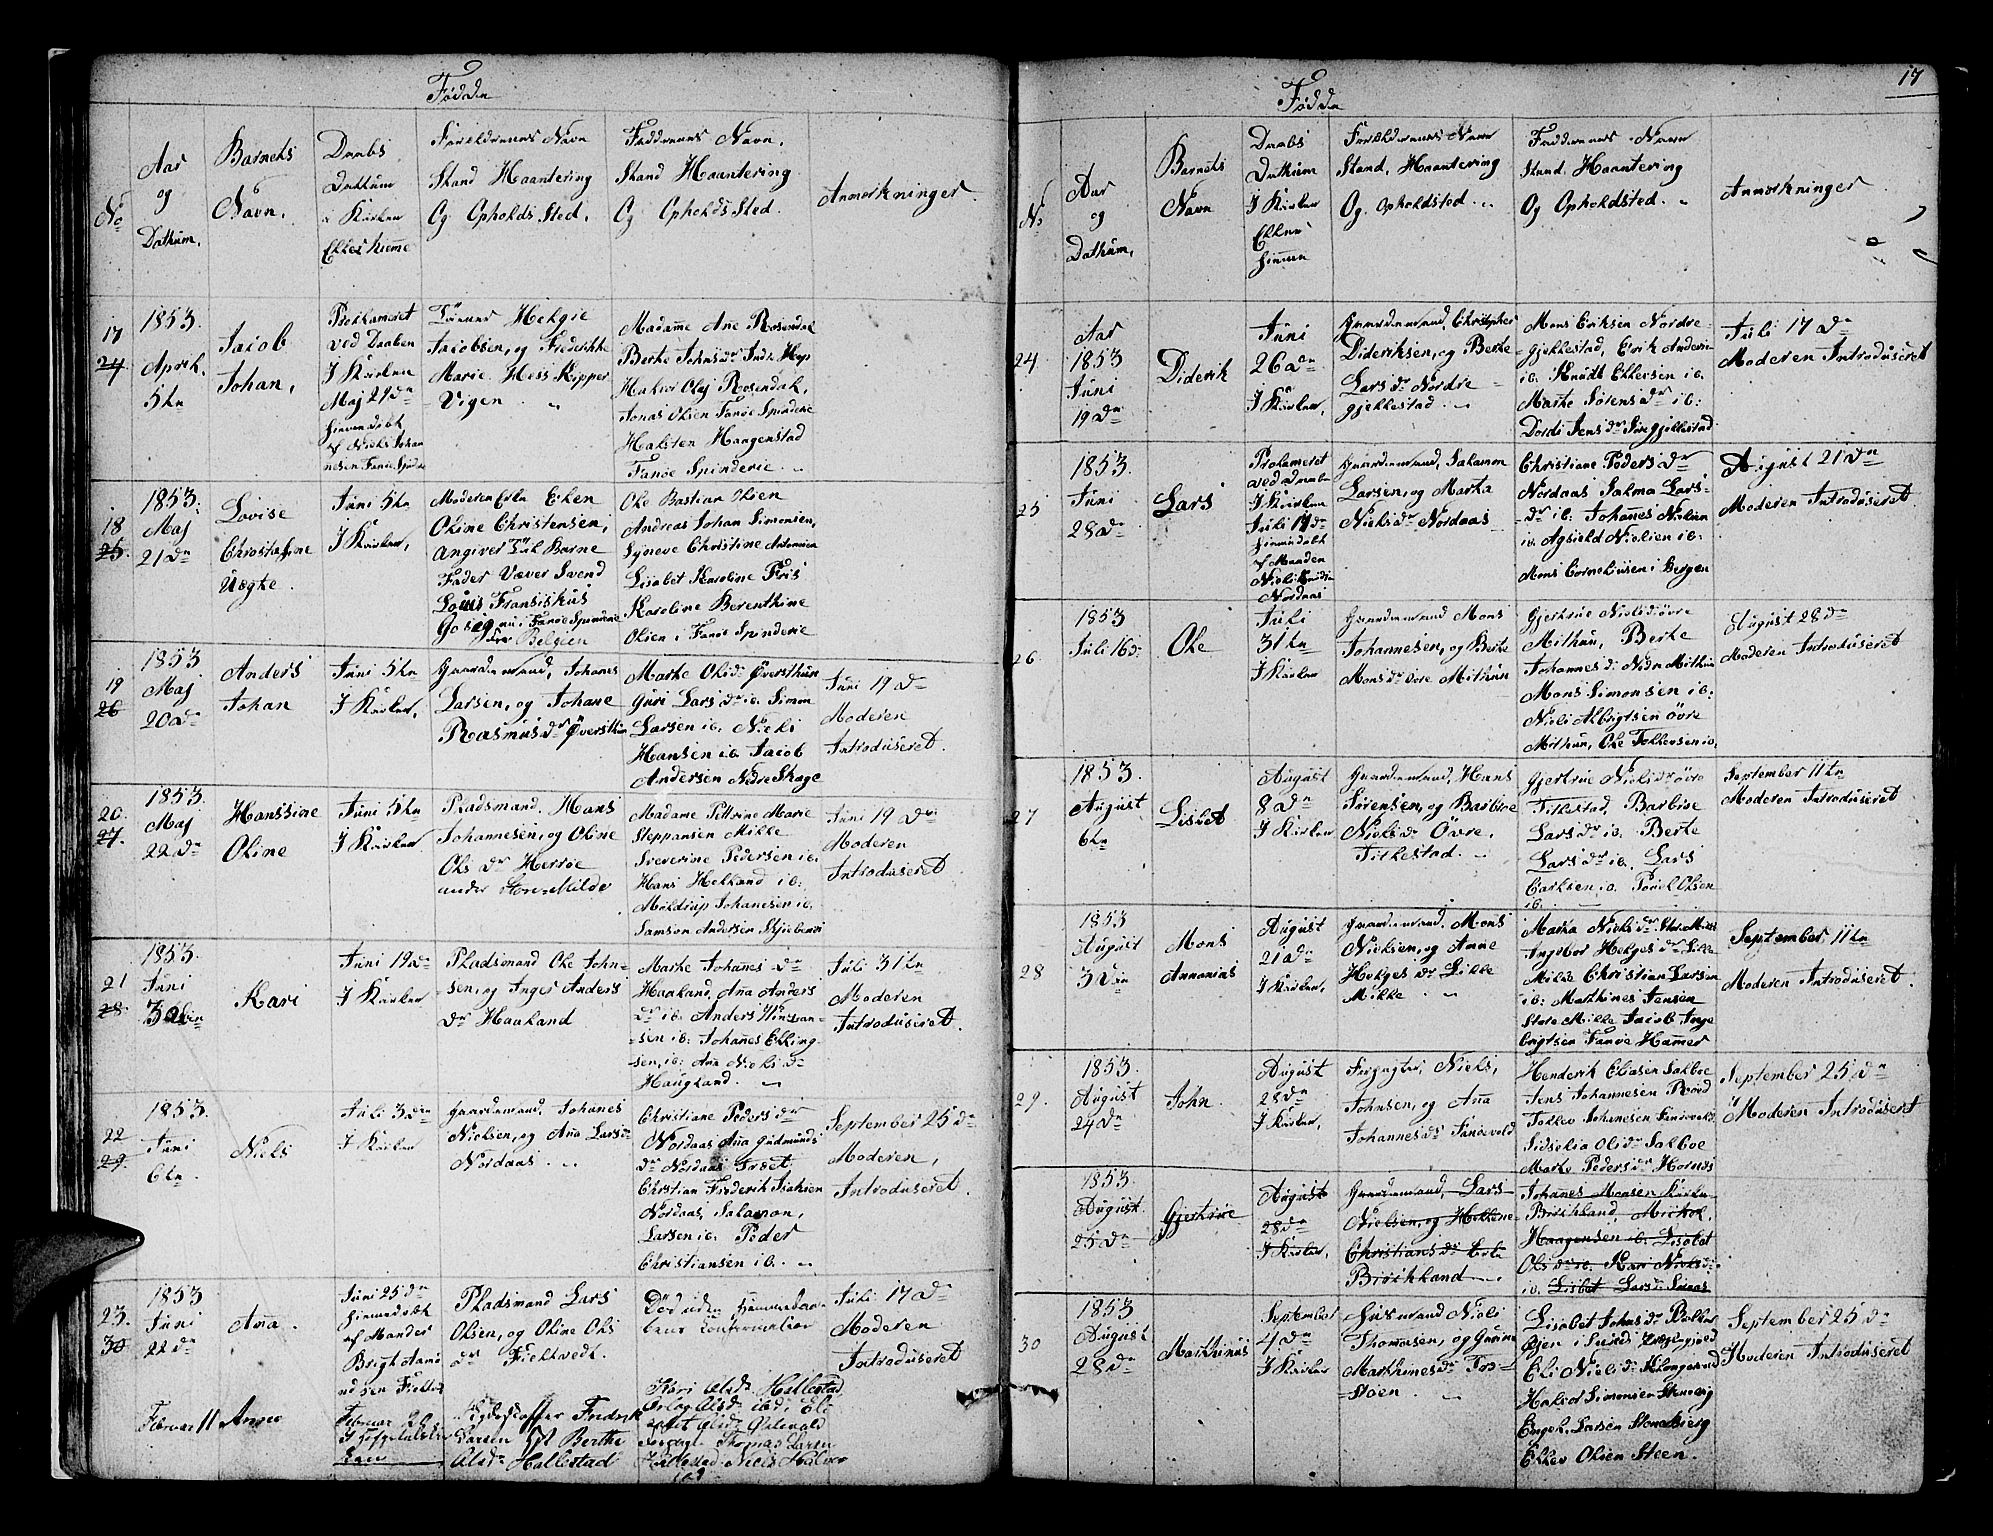 Fødde
No
Aar
og
Dathum.
Barnets
Navn.
Daabs
Dathum
i Kirken
Eller hieme
Foreldrenes Navn
Stand Haantering
Og Opholds Sted.
Faddrenes Navn.
Stand Haantering
Og Opholds Sted.
Anmerkninger.
17
24
1853.
April.
5te
Jacob
Johan,
Proklameret
ved Daaben
I Kirken
Maj 29de
hiemedøbt
af Niels Johan
nesen Fanøe Spinderie
Helgie
Jacobsen, og Frederikke
Marie Hess Kipper
Vigen
Madame Ane Rosendal
Berte
Haktor Olaj Rosendal,
Jonas Olsen Fanøe Spinderie
Halsten Haagenstad
Fanøe Spinderie
18
25.
1853.
Maj
21de
Lovise
Uægte.
Juni 5te
I Kirken,
Moderen
Oline Christensen,
angiver Til Barne
Fader Væver Svend
Louis Fransiskus
i Fanøe Spinderie
fra Belgien
Ole Bastian Olsen
Andreas Johan Simonsen,
Synøve Christine Antonisen
Lisabet Karoline Friis
Karoline Berenthine
Olsen i Fanøe Spinderie
19
26
1853
Maj
20de
Anders
Johan
Juni 5te
I Kirken,
Gaardemand, Johanes
Larsen, og Johane
Rasmusdr Øversthun
Marte Olsdr Øversthun
Guri Larsdr ib. Simon
Larsen ib. Niels
Hansen ib. Jacob
Andersen Nedre Skage
Juni 19de
Moderen
Introduseret.
20.
27.
1853.
Maj
22de
Hanssine
Oline
Juni 5te
I Kirken
Pladsmand. Hans
Johannesen, og Oline
Olsdr Herrøe
under Store Milde
Madame Petrine Marie
Steppansen Milde
Severine Pedersen ib.
Hans Helland ib:
Moldrup Johanesen ib.
Samson Andersen
Juni 19de
Moderen
Introduseret.
21
28
1853.
Juni
Kari
Juni 19de
I Kirken
Pladsmand Ole John-
sen, og Inger Anders
dr Haaland
Marte Johanes dr
Haaland, Ana Anders
dr ib. Anders
sen ib. Johanes Elling-
sen, ib: Ana Nielsdr
Haugland.
Juli 31te
Moderen
Introduseret.
22
29.
1853.
Juni
6te
Niels
Juli 3die
I Kirken
Gaardemand, Johanes
Nielsen, og Ana Larsdr
Nordaas
Christiane Pedersdr
Nordaas Ana Gudmunds
dr Nordaas Træet
Christian Friderik Isaksen
Nordaas, Salamon,
Larsen ib. Peder
Christiansen ib.
September 25de
Moderen,
Introduseret.
23.
30
1853
Juni
22de
Ana.
Juni 25de
hiemedøbt
af Mander
Brigt
Pladsmand Lars
Olsen, og Oline Ols
dr Fieltvedt.
Død uden hiemmedaa
bens Konfirmation
Juli 17de
Moderen
Introduseret
Februar 11
Anne
Februar 26
Larsen
Berthe
Olsdr Hallestad
Kari Olsdr Hallestad
Thomas Larsen
Hallestad Niels
Fødde
17
No
Aar
og
Dathum,
Barnets
Navn
Daabs
Dathum
I Kirken
Eller
hieme
Foreldrenes Navn
Stand, Haantering
Og. Opholdsted.
Faddrenes Navn
Stand. Haantering
Og Opholdsted.
Anmerkninger
24.
Aar
1853
Juni
19de
Diderik
Juni
26de
I Kirken,
Gaardemand, Christopher
Dideriksen, og Berte
Larsdr Nordre
gjellestad.
Mons Eriksen Nordre-
gjellestad, Erik Andersen
ib. Knudt Ellevsen ib.
Marte Sørensdr ib:
Dordi Jensdr Søregjellestad
Juli 17de
Moderen Introduseret
25
1853.
Juni
28de
Lars
Proklameret
ved Daaben
I Kirken
Juli 17de
hiemedøbt
af Manden
Niels Knudsen
Nordaas
Gaardemand, Salamon
Larsen, og Marta
Nielsdr Nordaas
Christiane Pedersdr
Nordaas Salma Lars-
dr ib: Johanes Nielsen
ib. Nielsen ib:
Mons Corneliusen i Bergen
August 21de
Moderen Introduseret
26
1853
Juli 16de
Ole
Juli
31te
I Kirken
Gaardemand Mons
Johannesen, og Berte
Monsdr øvre Mithun
Gjertrue Nielsdr øvre
Mithun, Berte
Johannesdr Nedre Mithun
Mons Simonsen ib:
Niels Albrigtsen øvre
Mithun, Ole Tollevsen ib.
August 28de
Moderen Introduseret
27
1853.
August
6te
Lisbet
August
8de
I Kirken
Gaardemand, Hans
Sørensen, og Barbroe
Nielsdr Øvre.
Titlestad.
Gjertrue Nielsdr øvre
Titlestad, Barbroe
Larsdr ib. Berte
Larsdr ib. Lars
Carlsen ib. Poul Olsen
ib.
September 11te
Moderen Introduseret
28
1853
August
3die
Mons
Annanias
August
21de
I Kirken,
Gaardemand, Mons
Nielsen, og Anne
Helgesdr Lille
Milde.
Marta Nielsdr Store Milde
Ingebor Helgesdr Lille
Milde Christian Larsen
ib: Mathines Jensen
Store Milde Jacob Inge
brigtsen Fanøe Hamer
September 11te
Moderen Introduseret.
29.
1853.
August
24de
John.
August
28de
I Kirken,
Niels,
Johnsen, og Ana
Johannesdr Fanøevold
Henderik Eliasen Salbøe
Jens Johannesen
Tollev Johanesen Fanøevold
Sidselia Olsdr Salbøe
Marte Pedersdr Hornæs
September 25de
Moderen Introduseret
1853.
August.
25de
Gjertrue
August
28de
I Kirken,
Gaardemand, Lars
Nielsen, og Hellene
Christiansdr
Birchland
Johanes Monsen
Birchland, Michel,
Haagensen ib. Lisabet
Olsdr ib. Kari Nielsdr
ib. Lisbet Larsdr
30
1853
August
28de
Mathinus
September
4de
I Kirken
Husmand Niels
Thomasen, og Gurine
Marthinesdr
Steen
Lisabet Johnsdr
Øijen i Sund
Eli Nielsdr
Halvor Simonsen
Larsen
Ellev Olsen Steen.
September 25de
Moderen Introduseret